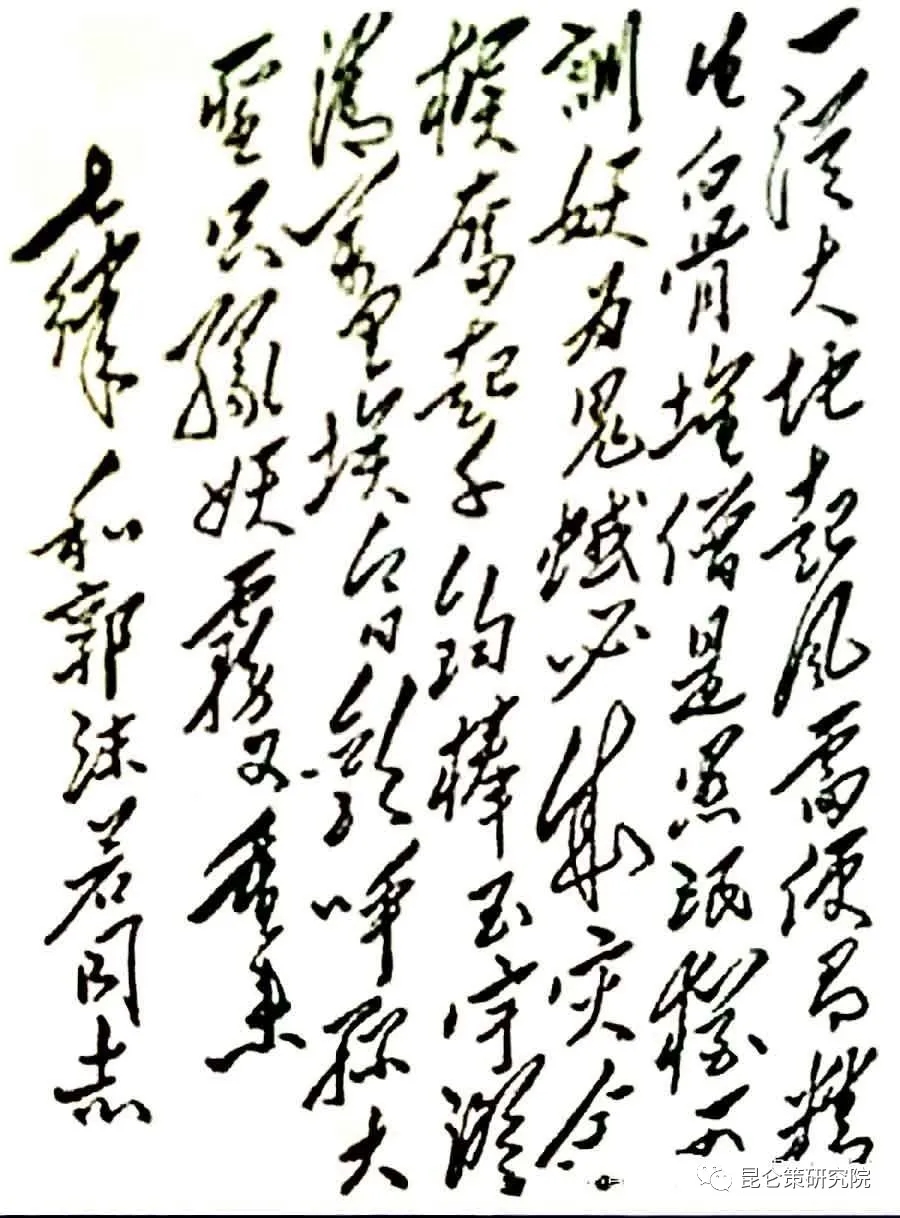 一從大地起风雷便有精
生白骨堆僧是愚氓猶可
訓妖为鬼蜮必成灾金
猴奮起千鈞棒玉宇澄
清萬里埃今日歡呼孫大
聖只緣妖霧又重來
七律 和郭沫若同志
昆仑策研究院